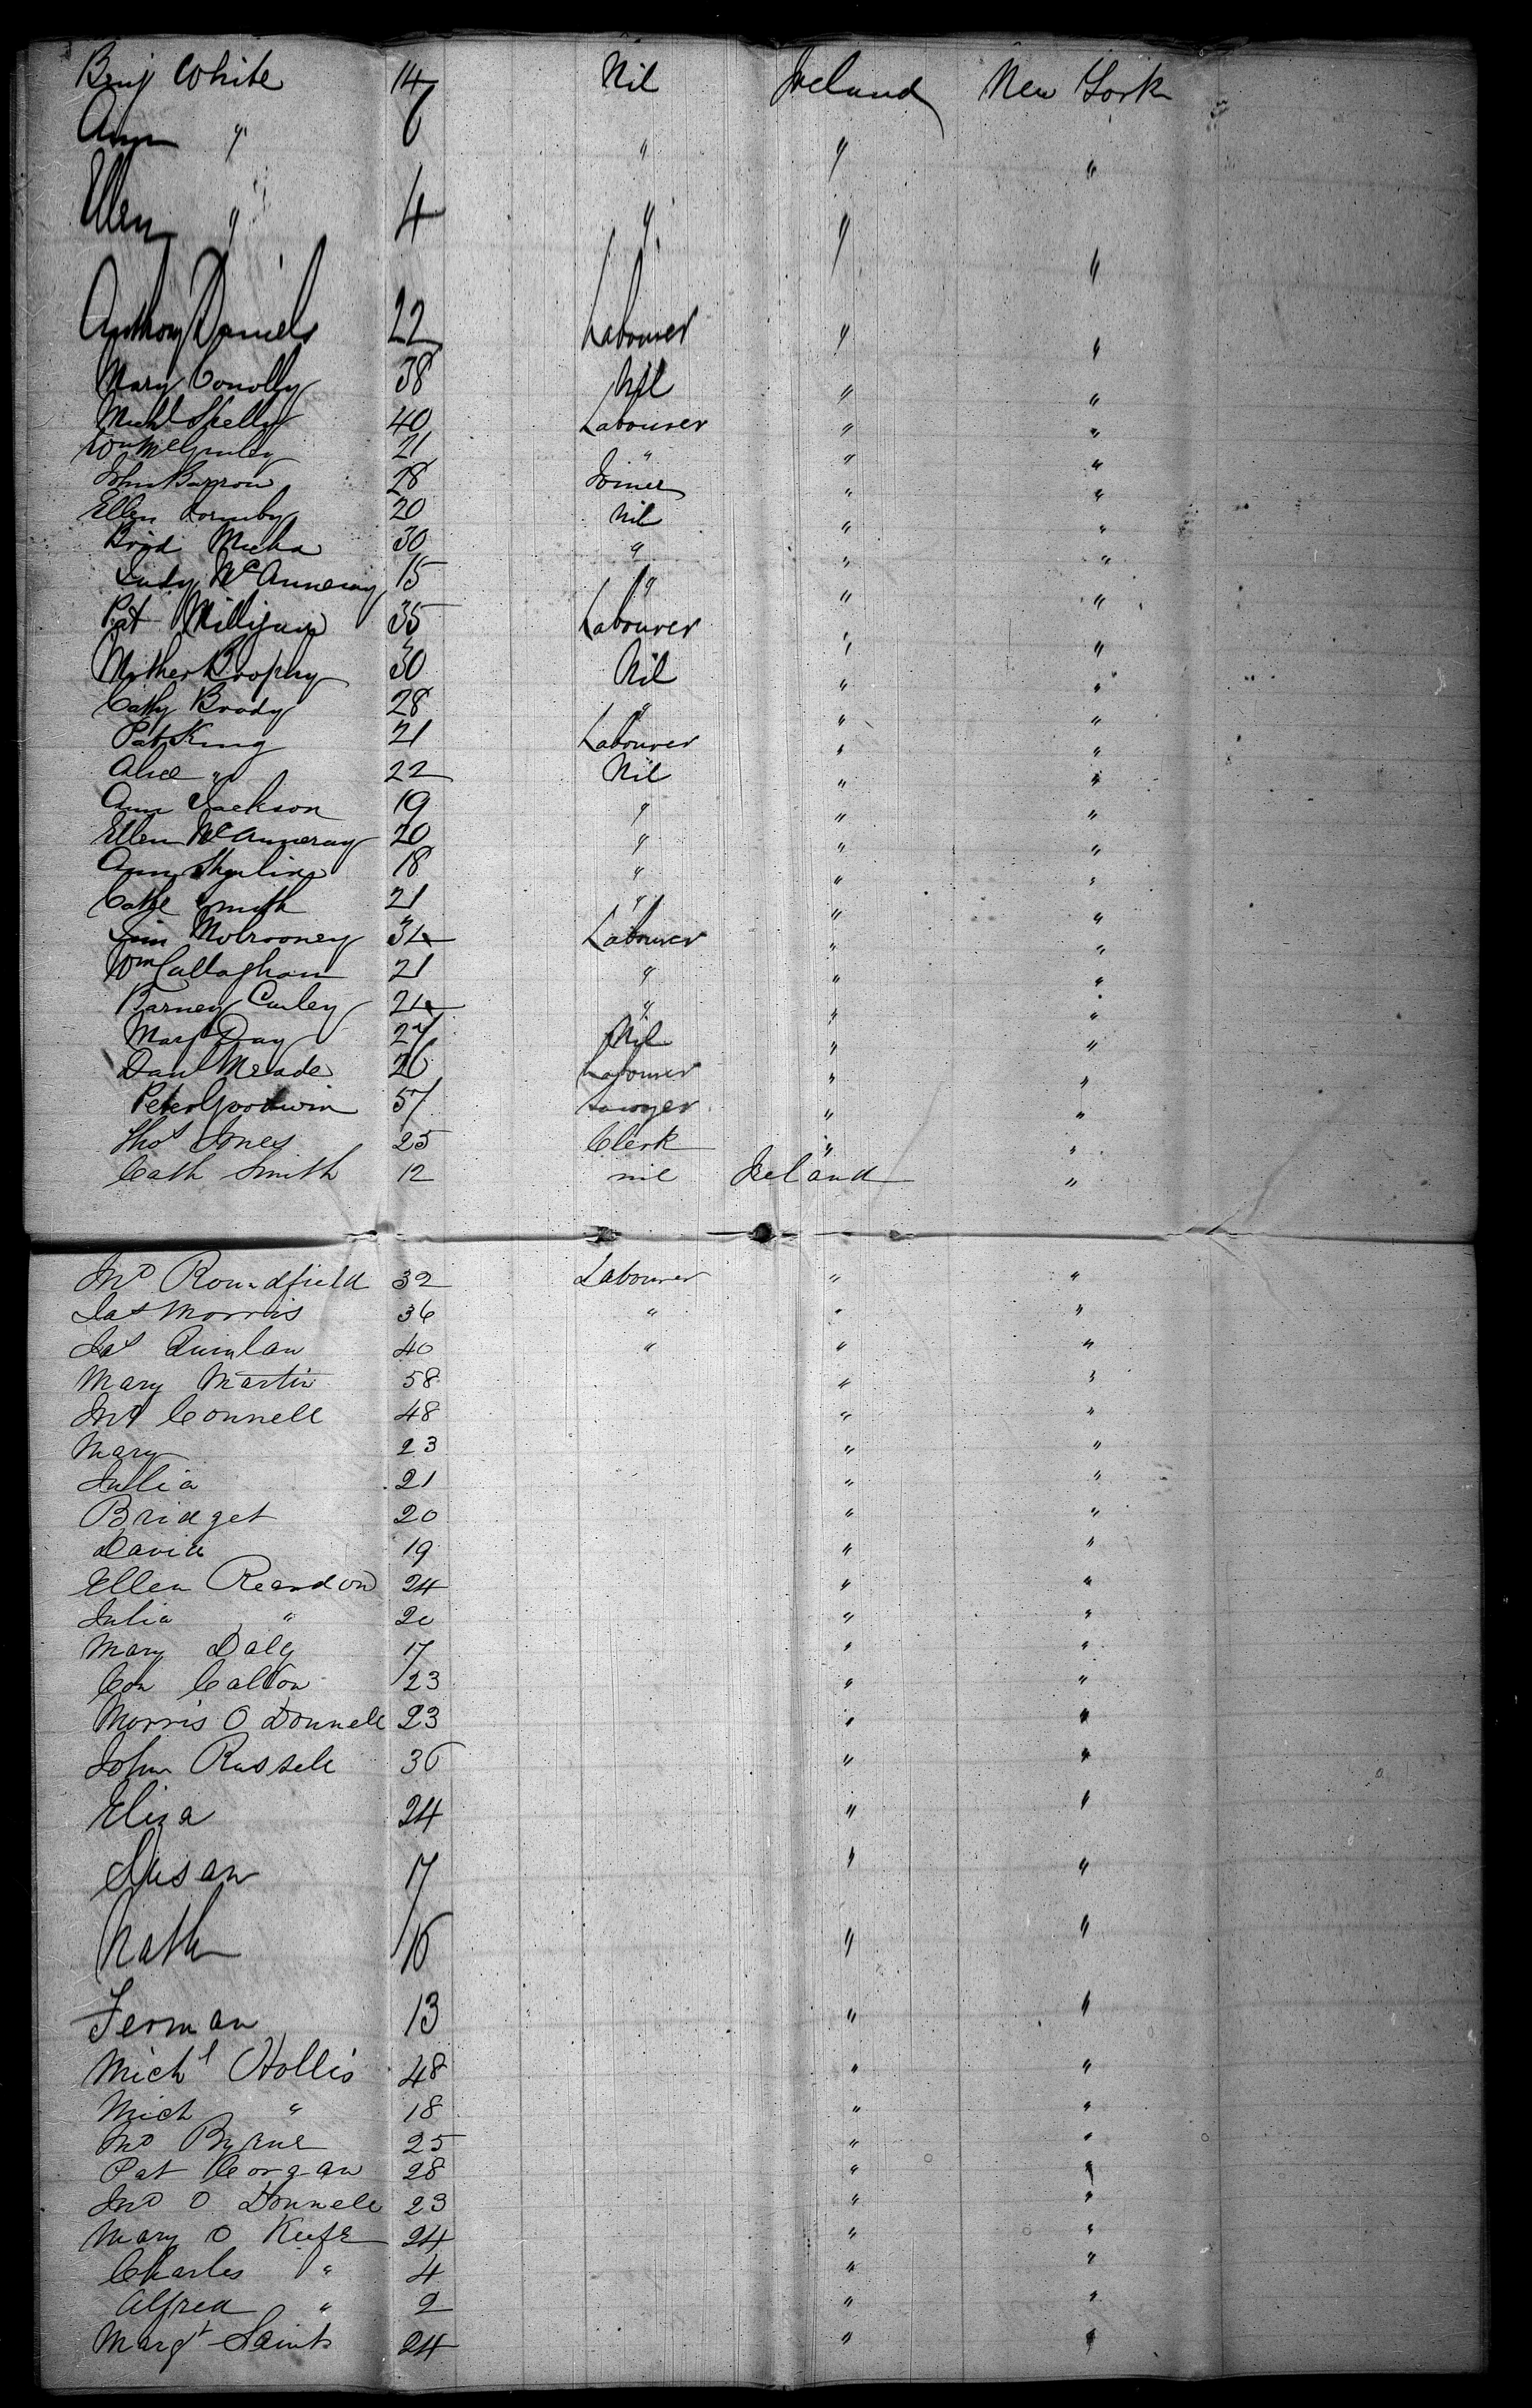 Benj White 14 Nil Ireland New York
Ann " 6 " " "
Ellen " 4 " " "
Anthony Daniels 22 Labourer " "
Mary Conolly 38 Nil " "
Michl Skelly 40 Labourer " "
Wm McGinley 21 " " "
John Barrow 28 Joiner " "
Ellen Formby 20 Nil " "
Brid 30 " " "
Judy McAnneray 15 " " "
Pat Milligan 35 Labourer " "
Brophy 30 Nil " "
Cathy Brady 28 " " "
Pat King 21 Labourer " "
Alice " 22 Nil " "
Ann Jackson 19 " " "
Ellen McAnneray 20 " " "
Ann 18 " " "
Cathe Smith 21 " " "
Jim Molrooney Labourer " "
Wm Callaghan 21 " " "
Barney Curley " " "
Margt Day 27 Nil " "
Danl Meade 26 Labourer " "
Peter Goodwin 57 Sawyer " "
Thos Jones 25 Clerk " "
Cath Smith 12 nil Ireland "
Jno Roundfield 32 Labourer " "
Jas Morris 36 " " "
Jas Quinlan 40 " " "
Mary Martin 58 " "
Jno Connell 48 " "
Mary 23 " "
Julia 21 " "
Bridget 20 " "
David 19 " "
Ellen Reardon 24 " "
Julia " 20 " "
Mary Daly 17 " "
Con 23 " "
Morris O Donnell 23 " "
John Russell 36 " "
Eliza 24 " "
Susan 17 " "
Nath 16 " "
Ferman 13 " "
Michl Hollis 48 " "
Mich " 18 " "
Jno Byrne 25 " "
Pat Corgan 28 " "
Jno O Donnell 23 " "
Mary O Keefe 24 " "
Charles " 4 " "
Alfred " 2 " "
Margt Saint 24 " "